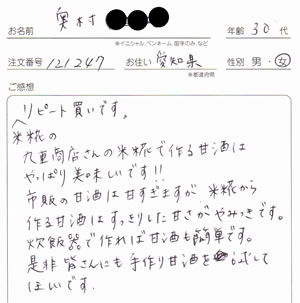 お名前 奥村 年齢 30代
※イニシャル、ペンネーム、苗字のみ、など
注文番号 121247 お住い 愛知県 性別 男・女
※都道府県
ご感想
リピート買いです。
米糀の
九重商店さんの米糀で作る甘酒は
やっぱり美味しいです!!
市販の甘酒は甘すぎますが 米糀から
作る甘酒はすっきりした甘さがやみつきです。
炊飯器で作れば甘酒も簡単です。
是非皆さんにも手作り甘酒を試して
ほしいです.